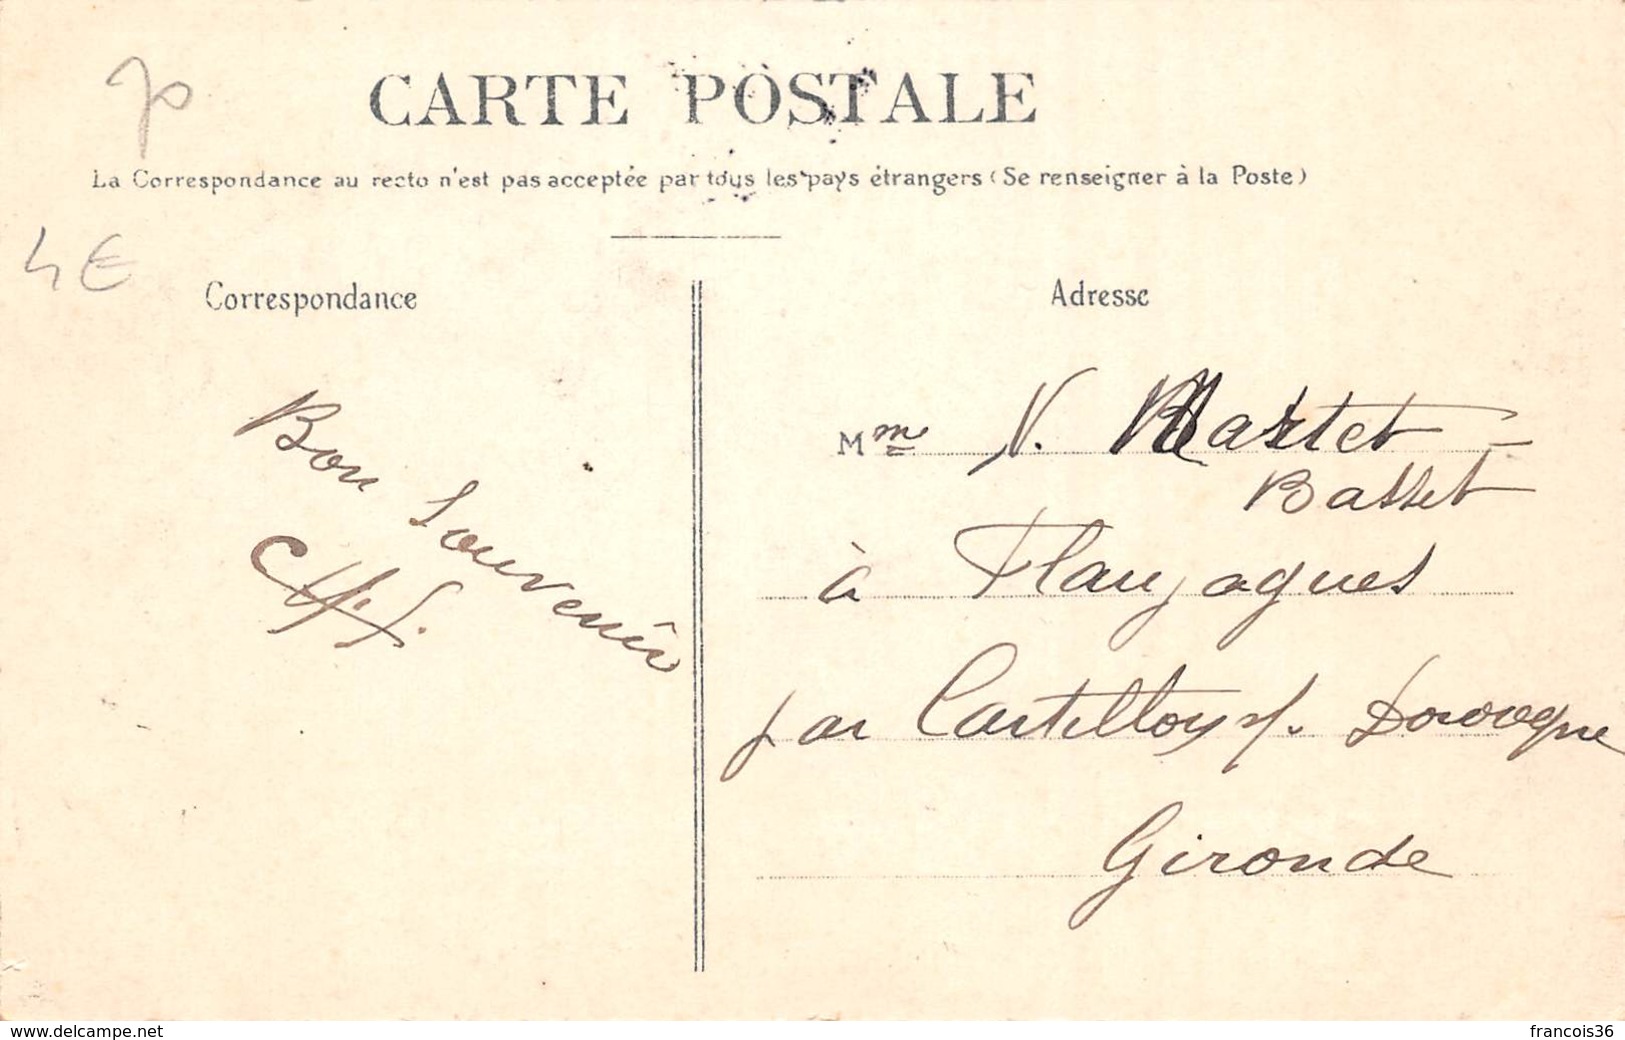 70
CARTE POSTALE
La Correspondance au recto n'est pas acceptée par tous les pays étrangers (Se renseigner à la Poste)
4€
Correspondance
Bon Souvenir
Adresse
Mme V. Martet -
Basset
à Flaujagues
par Castillon s/. Dordogne
Gironde
www.delcampe.net
francois36